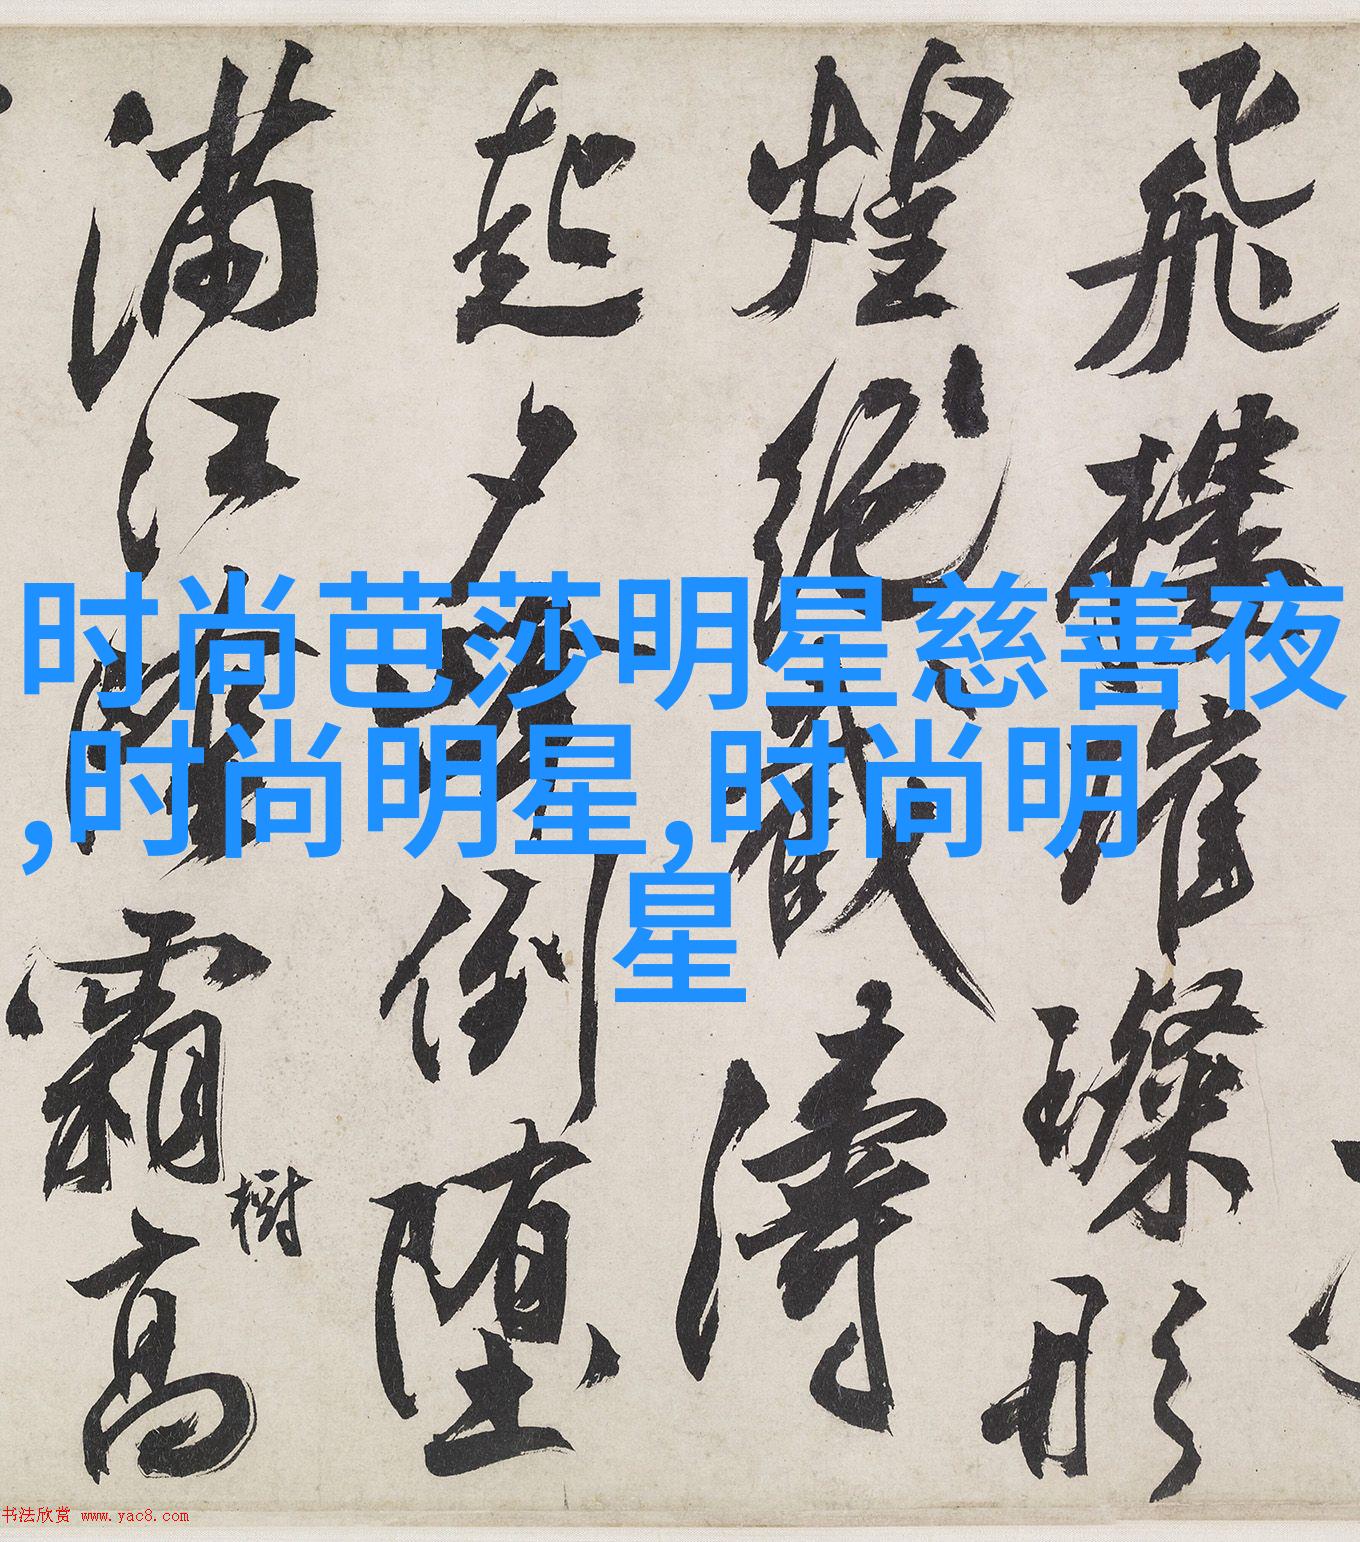 飛樓璀璨形
煌絕截濤
起夕倒墮
滿江霜高
樹
时尚芭莎明星慈善夜
,时尚明星,时尚明
星
书法欣赏 www.yac8.com